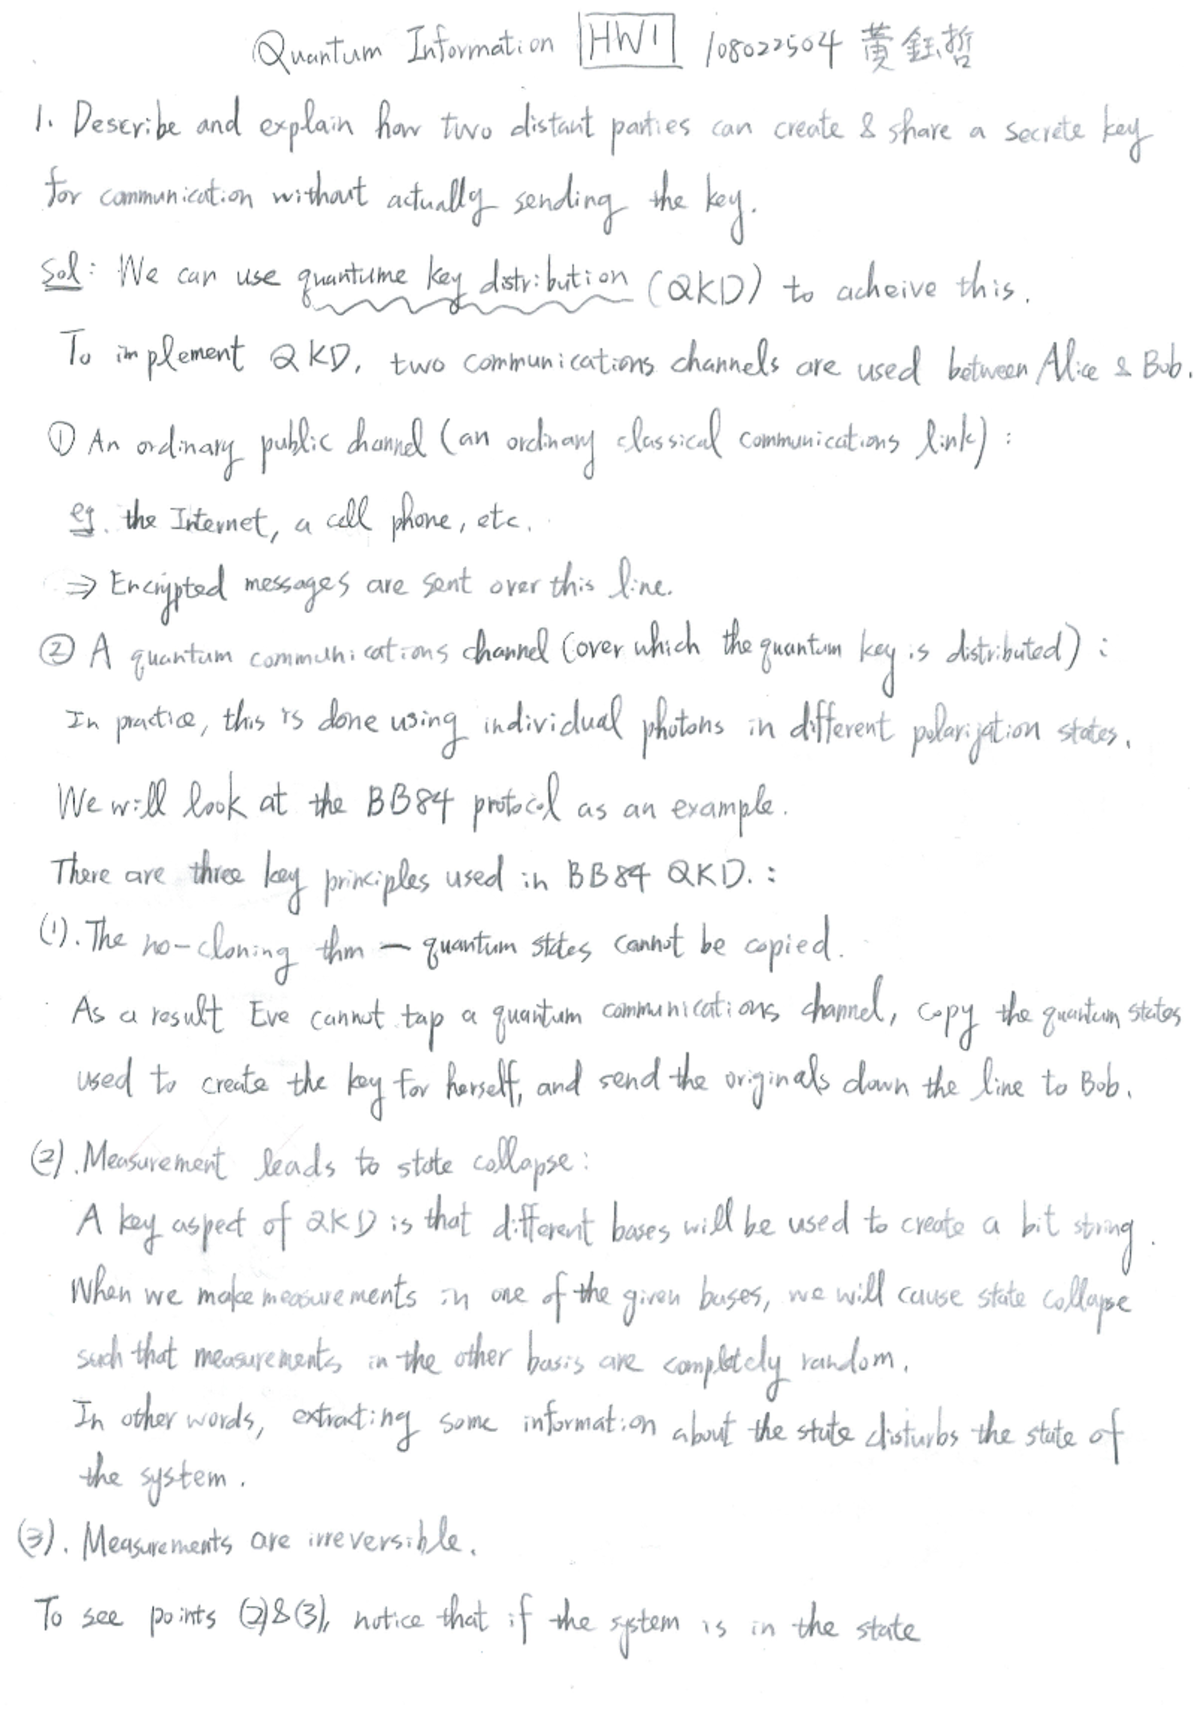 Quantum Information HW1 108022504 黃鈺哲
1. Describe and explain how two distant parties can create & share a secrete key
for communication without actually sending the key.
Sol: We can use quantume key distribution (QKD) to acheive this.
To implement QKD, two communications channels are used between Alice & Bob.
① An ordinary public channel (an ordinary classical communications link) :
eg. the Internet, a cell phone, etc.
⇒ Encrypted messages are sent over this line.
② A quantum communications channel (over which the quantum key is distributed) :
In practice, this is done using individual photons in different polarization states.
We will look at the BB84 protocol as an example.
There are three key principles used in BB84 QKD. :
(1). The no-cloning thm — quantum states cannot be copied.
As a result Eve cannot tap a quantum communications channel, copy the quantum states
used to create the key for herself, and send the originals down the line to Bob.
(2). Measurement leads to state collapse :
A key aspect of QKD is that different bases will be used to create a bit string.
When we make measurements in one of the given bases, we will cause state collapse
such that measurements in the other basis are completely random.
In other words, extracting some information about the state disturbs the state of
the system.
(3). Measurements are irreversible.
To see points (2)&(3), notice that if the system is in the state